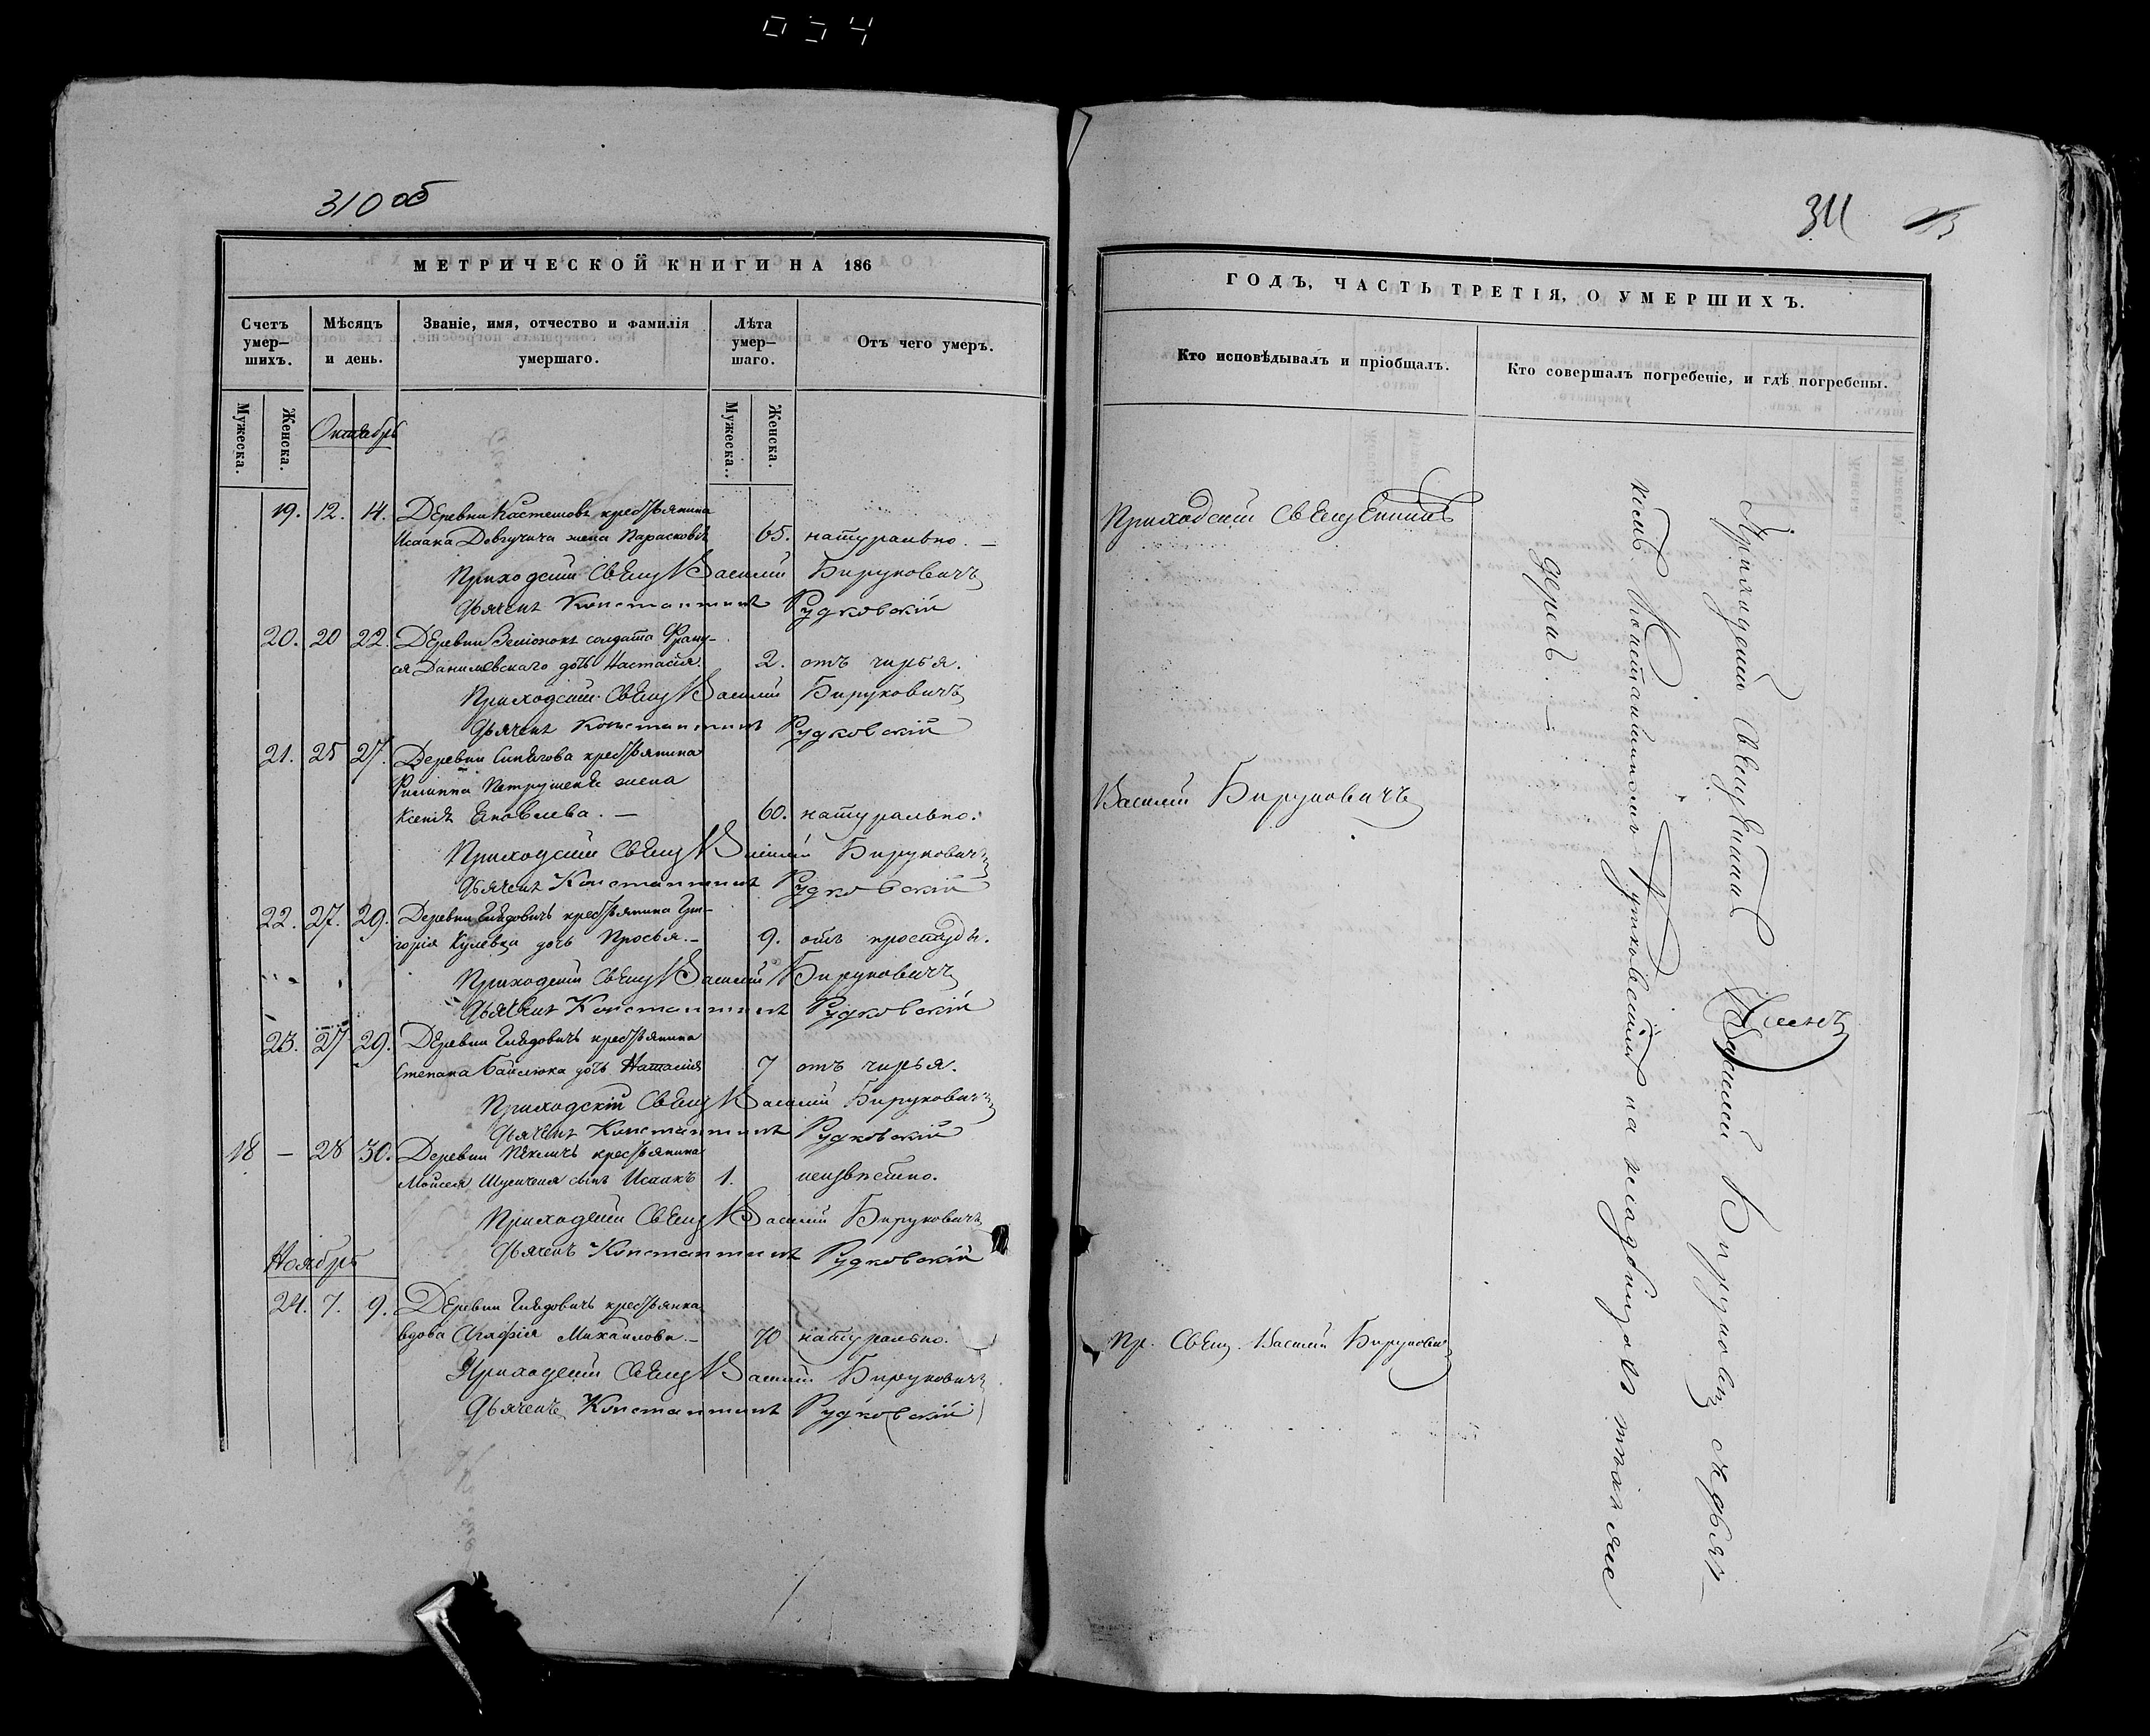 310 об
МЕТРИЧЕСКОЙ КНИГИ НА 186
Счетъ умер—шихъ.
Мѣсяцъ и день.
Званіе, имя, отчество и фамилія умершаго.
Лѣта умер—шаго.
Отъ чего умеръ.
Мужеска.
Женска.
Мужеска.
Женска.
Октябрь
19. 12. 14. Деревни крестьянина
Исаака жена Парасковія 65. натурально. —
Приходскій Свящ Василій Бируковичъ
Дьячекъ Константинъ Рудковскій
20. 20 22. Деревни солдата Фран-
ца Данилевскаго дочь Настасія. 2. отъ чирья.
Приходскій Свящ Василій Бируковичъ
Дьячекъ Константинъ Рудковскій
21. 25 27. Деревни крестьянина
Филиппа жена
Ксенія Яковлева. — 60. натурально.
Приходскій Свящ Василій Бируковичъ
Дьячекъ Константинъ Рудковскій
22. 27. 29. Деревни крестьянина Гри-
горія дочь Просья. — 9. отъ простуды.
Приходскій Свящ Василій Бируковичъ
Дьячекъ Константинъ Рудковскій
23. 27 29. Деревни крестьянина
Степана дочь 7 отъ чирья.
Приходскій Свящ Василій Бируковичъ
Дьячекъ Константинъ Рудковскій
18 — 28 30. Деревни крестьянина
Моисея сынъ Исаакъ 1. неизвѣстно.
Приходскій Свящ Василій Бируковичъ
Дьячекъ Константинъ Рудковскій
Ноябрь
24. 7. 9. Деревни крестьянка
вдова Агафія Михайлова — 70 натурально.
Приходскій Свящ Василій Бируковичъ
Дьячекъ Константинъ Рудковскій
311
ГОДЪ, ЧАСТЬ ТРЕТІЯ, О УМЕРШИХЪ.
Кто исповѣдывалъ и пріобщалъ.
Кто совершалъ погребеніе, и гдѣ погребены.
Приходскій Священникъ
Василій Бируковичъ
Пр. Свящ. Василій Бируковичъ
Приходскій Священникъ Василій Бируковичъ съ дьяч-
комъ Константиномъ Рудковскимъ на кладбищахъ
деревъ. —